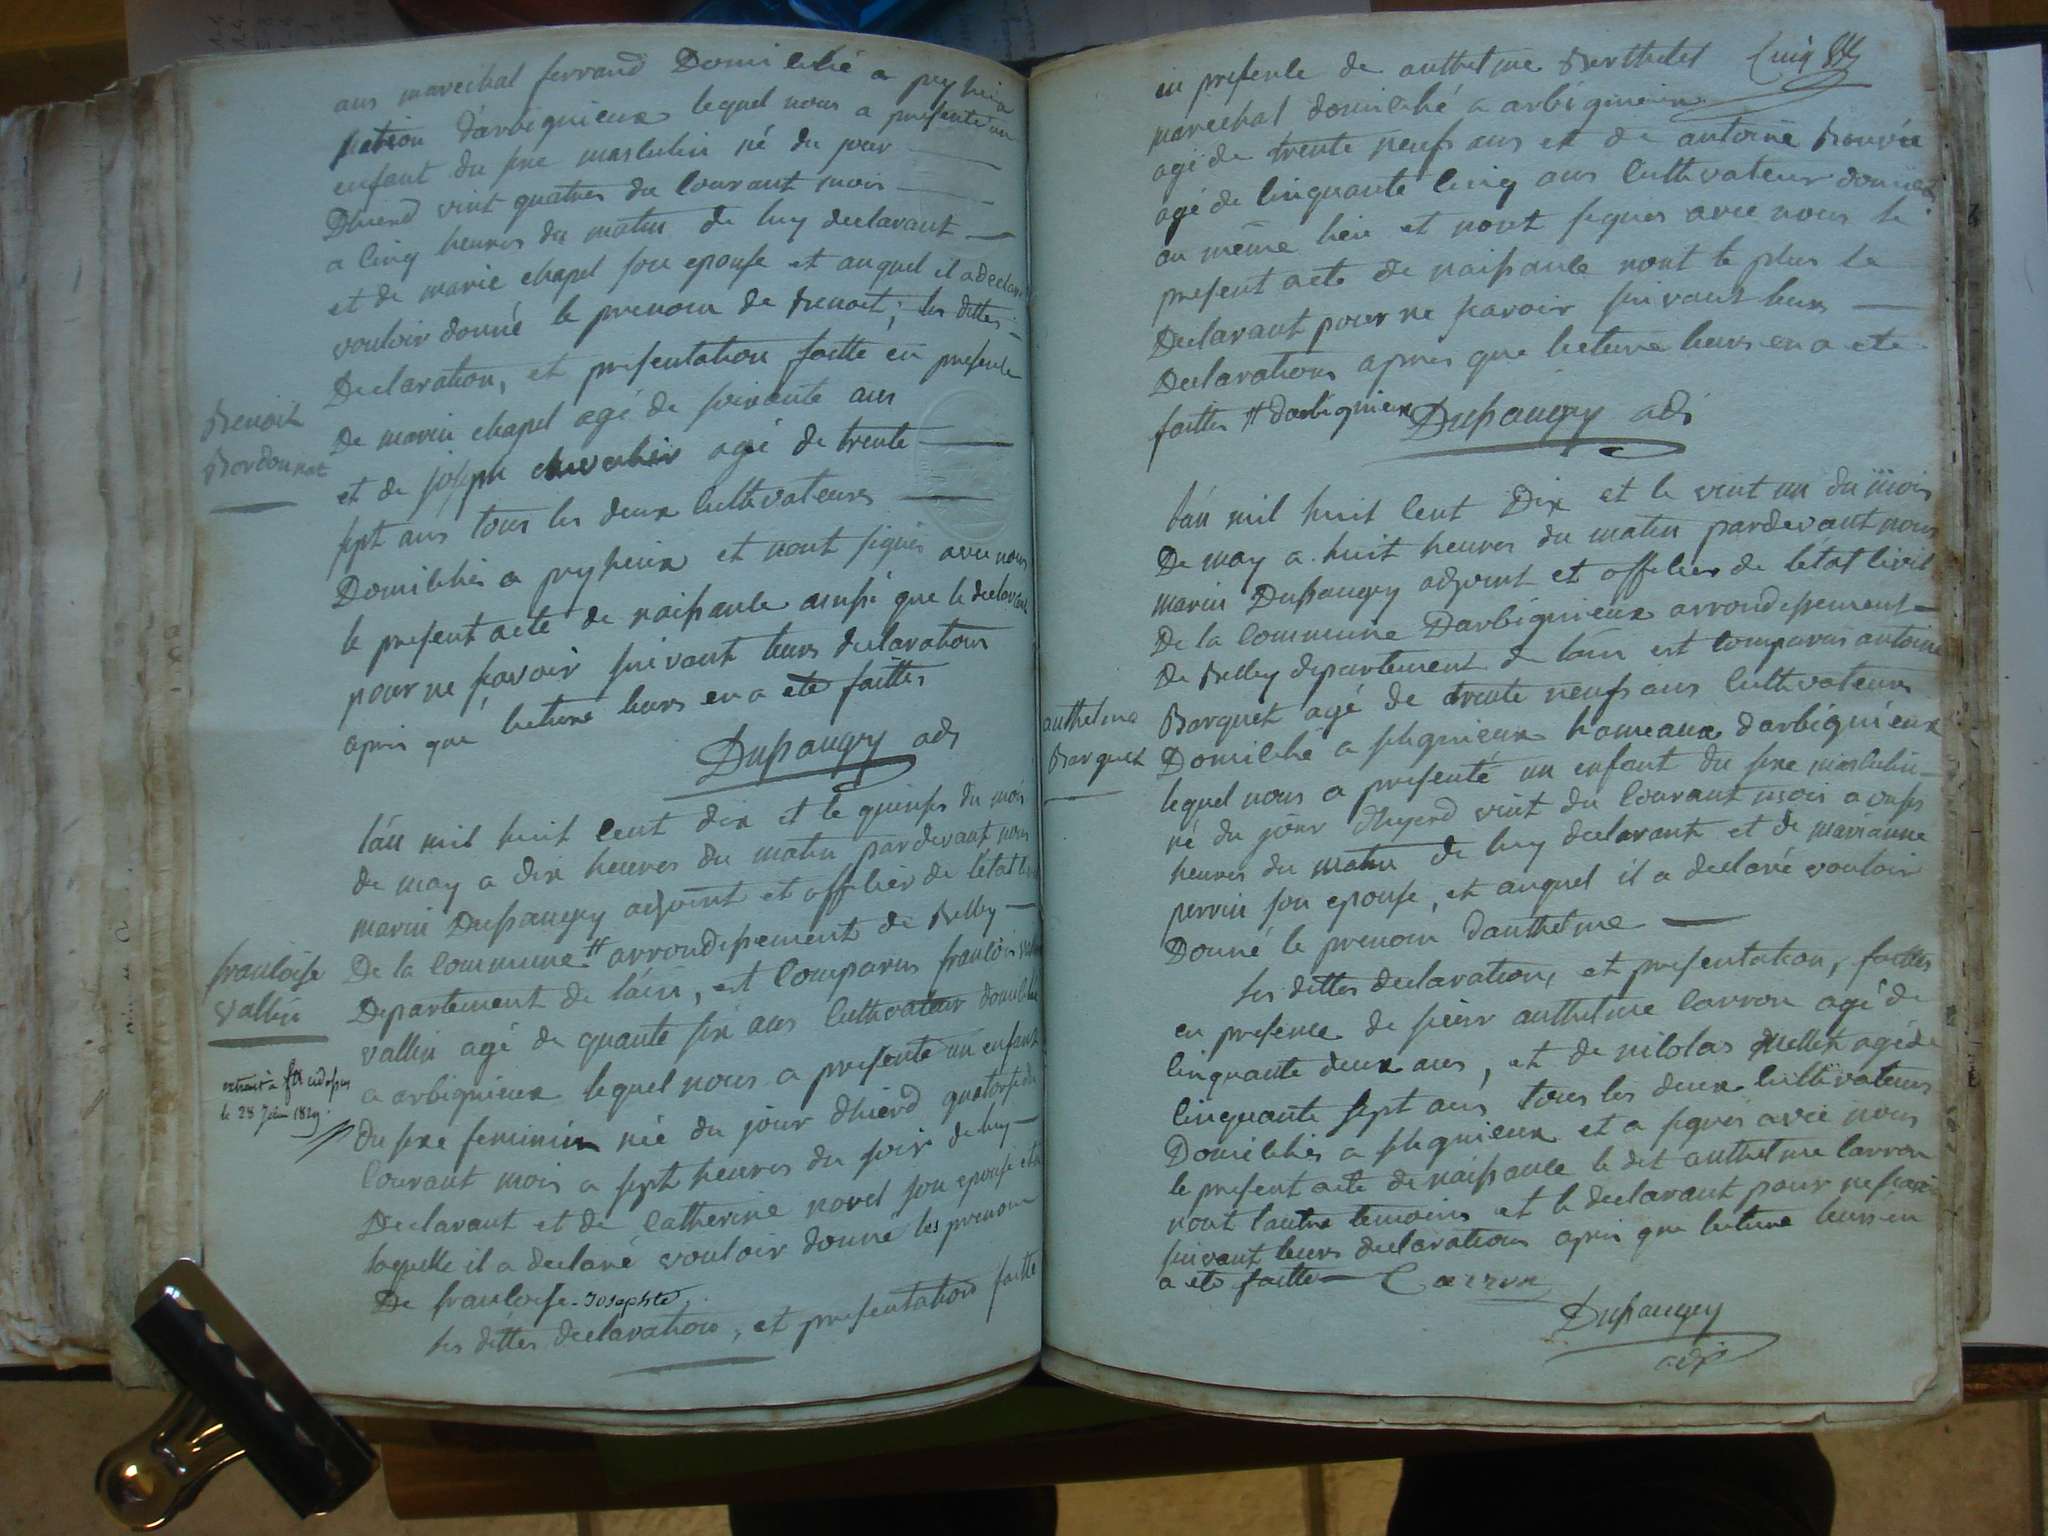 ans marechal ferrand Domicilié a peyzieu
section d'arbignieux lequel nous a presenté un
enfant du sexe masculin né du jour
Dhierd vint quatres du Courant mois
a cinq heures du matin de luy declarant
et de marie chapel son epouse et auquel il a declaré
vouloir donné le prenom de benoit, les dittes
Declaration, et presentation faitte en presence
De marin chapel agé de soixante ans
et de joseph chevalier agé de trente
sept ans tous les deux Cultivateurs
Domiciliés a peyzieux et nont signés avec nous
le present acte de naissance ainssi que le declarant
pour ne scavoir suivant leurs declarations
apres que lecture leurs en a eté faittes
Dupaugey adj
Benoit
Bordonnat
lán mil huit cent dix et le quinse du mois
de may a dix heures du matin pardevant nous
marin Dupaugey adjoint et officier de létat civil
De la Commune # arrondissement de Belley
Departement de láin, est Comparus francois vallin
vallin agé de quante six ans Cultivateur domicilié
a arbignieux lequel nous a presenté un enfant
du sexe feminin née du jour dhierd quatorse du
Courant mois a sept heures du soir de luy
Declarant et de Catherine novel son epouse et à
laquelle il a declaré vouloir donné les prenom
De francoise-Josephte.
les dittes declaration, et presentation faitte
francoise
Vallin
extrait à
le 28 Juin 1829.
en presence de anthelme Berthelet
marechal domicilié a arbignieux
agé de trente neufs ans et de antoine Bouvée
agé de cinquante cinq ans Cultivateur domicilié
au même lieu et nont signés avec nous le
present acte de naissance nont le plus le
Declarant pour ne scavoir suivant leurs
Declarations apres que lecture leurs en a eté
faittes # darbignieux Dupaugey adj
Cinq
lán mil huit cent Dix et le vint un du mois
De may a huit heures du matin pardevant nous
marin Dupaugey adjoint et officier de létat civil
De la Commune Darbignieux arrondissement
De Belley departement de láin est Comparus antoine
Barquet agé de trente neufs ans Cultivateurs
Domicilié a slignieux hameaux darbignieux
lequel nous a presenté un enfant du sexe masculin
né du jour dhyerd vint du Courant mois a onsse
heures du matin de luy declarant et de marianne
perrin son epouse, et auquel il a declaré vouloir
Donné le prenom danthelme
les dittes declaration, et presentation, faittes
en presence de sieur anthelme Carron agé de
Cinquante deux ans, et de nicolas mellet agé de
Cinquante sept ans tous les deux Cultivateurs
Domiciliés a slignieux et a signés avec nous
le present acte de naissance le dit anthelme Carron
nont lautre temoins et le declarant pour ne scavoir
suivant leurs declarations apres que lecture leurs en
a eté faitte Carron
Dupaugey
adj
anthelme
Barquet